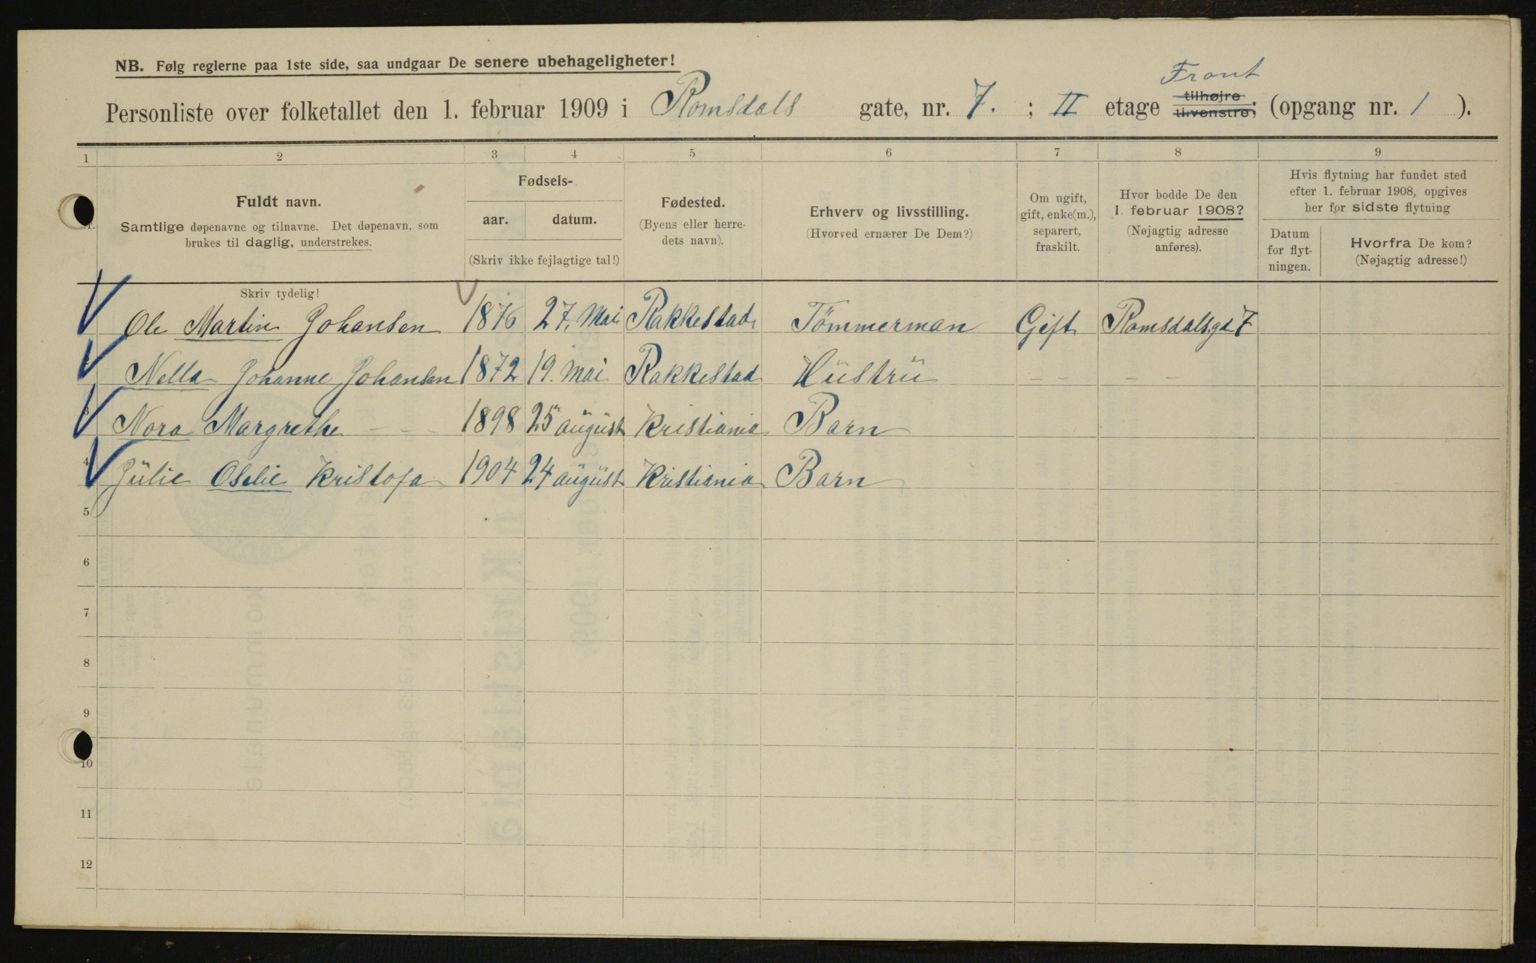 NB. Følg reglerne paa 1ste side, saa undgaar De senere ubehageligheter!
Front
Personliste over folketallet den 1. februar 1909 i Romsdals gate, nr. 7. ; II etage tilhøjre tilvenstre; (opgang nr. 1 ).
1 2 3 4 5 6 7 8 9
Fuldt navn.
Samtlige døpenavne og tilnavne. Det døpenavn, som
brukes til daglig, understrekes.
Skriv tydelig!
Fødsels-
aar. datum.
(Skriv ikke fejlagtige tal!)
Fødested.
(Byens eller herre-
dets navn).
Erhverv og livsstilling.
(Hvorved ernærer De Dem?)
Om ugift,
gift, enke(m.),
separert,
fraskilt.
Hvor bodde De den
1. februar 1908?
(Nøjagtig adresse
anføres).
Hvis flytning har fundet sted
efter 1. februar 1908, opgives
her før sidste flytning
Datum
for flyt-
ningen.
Hvorfra De kom?
(Nøjagtig adresse!)
Ole Martin Johansen 1876 27. Mai Rakkestad Tömmerman Gift Romsdalsgd 7
Nella Johanne Johansen 1872 19. Mai Rakkestad Hüstrü — — — —
3 Nora Margrethe — — — 1898 25 august Kristiania Barn
4 Jülie Oselie Kristofa 1904 24 august Kristiania Barn
5
6
7
8
9
10
11
12